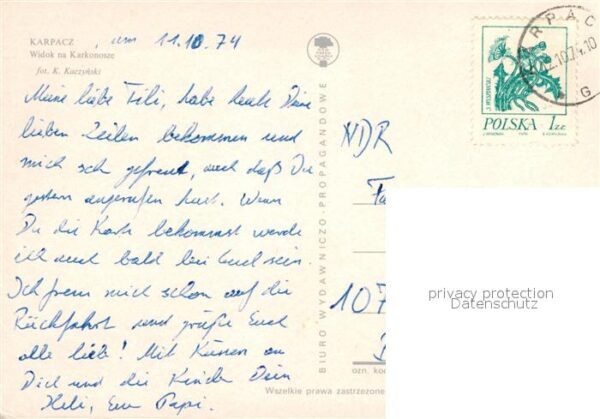 KARPACZ
Widok na Karkonosze
fot. K. Kaczyński
, am 11.10.74
Meine liebe Fili, habe heute Deine
lieben Zeilen bekommen und
mich seh gefreut, auch daß Du
gestern angerufen hast. Wenn
Du die Karte bekommst werde
ich auch bald bei Euch sein.
Ich freue mich schon auf die
Rückfahrt und grüße Euch
alle lieb! Mit Küssen an
Dich und die Kinder Dein
Heli, Euer Papi.
BIURO WYDAWNICZO-PROPAGANDOWE
Wszelkie prawa zastrzeżone
ozn. ko
KARPAC
12.10.74.10
G
POLSKA 1 ZŁ
NDR
107
privacy protection
Datenschutz